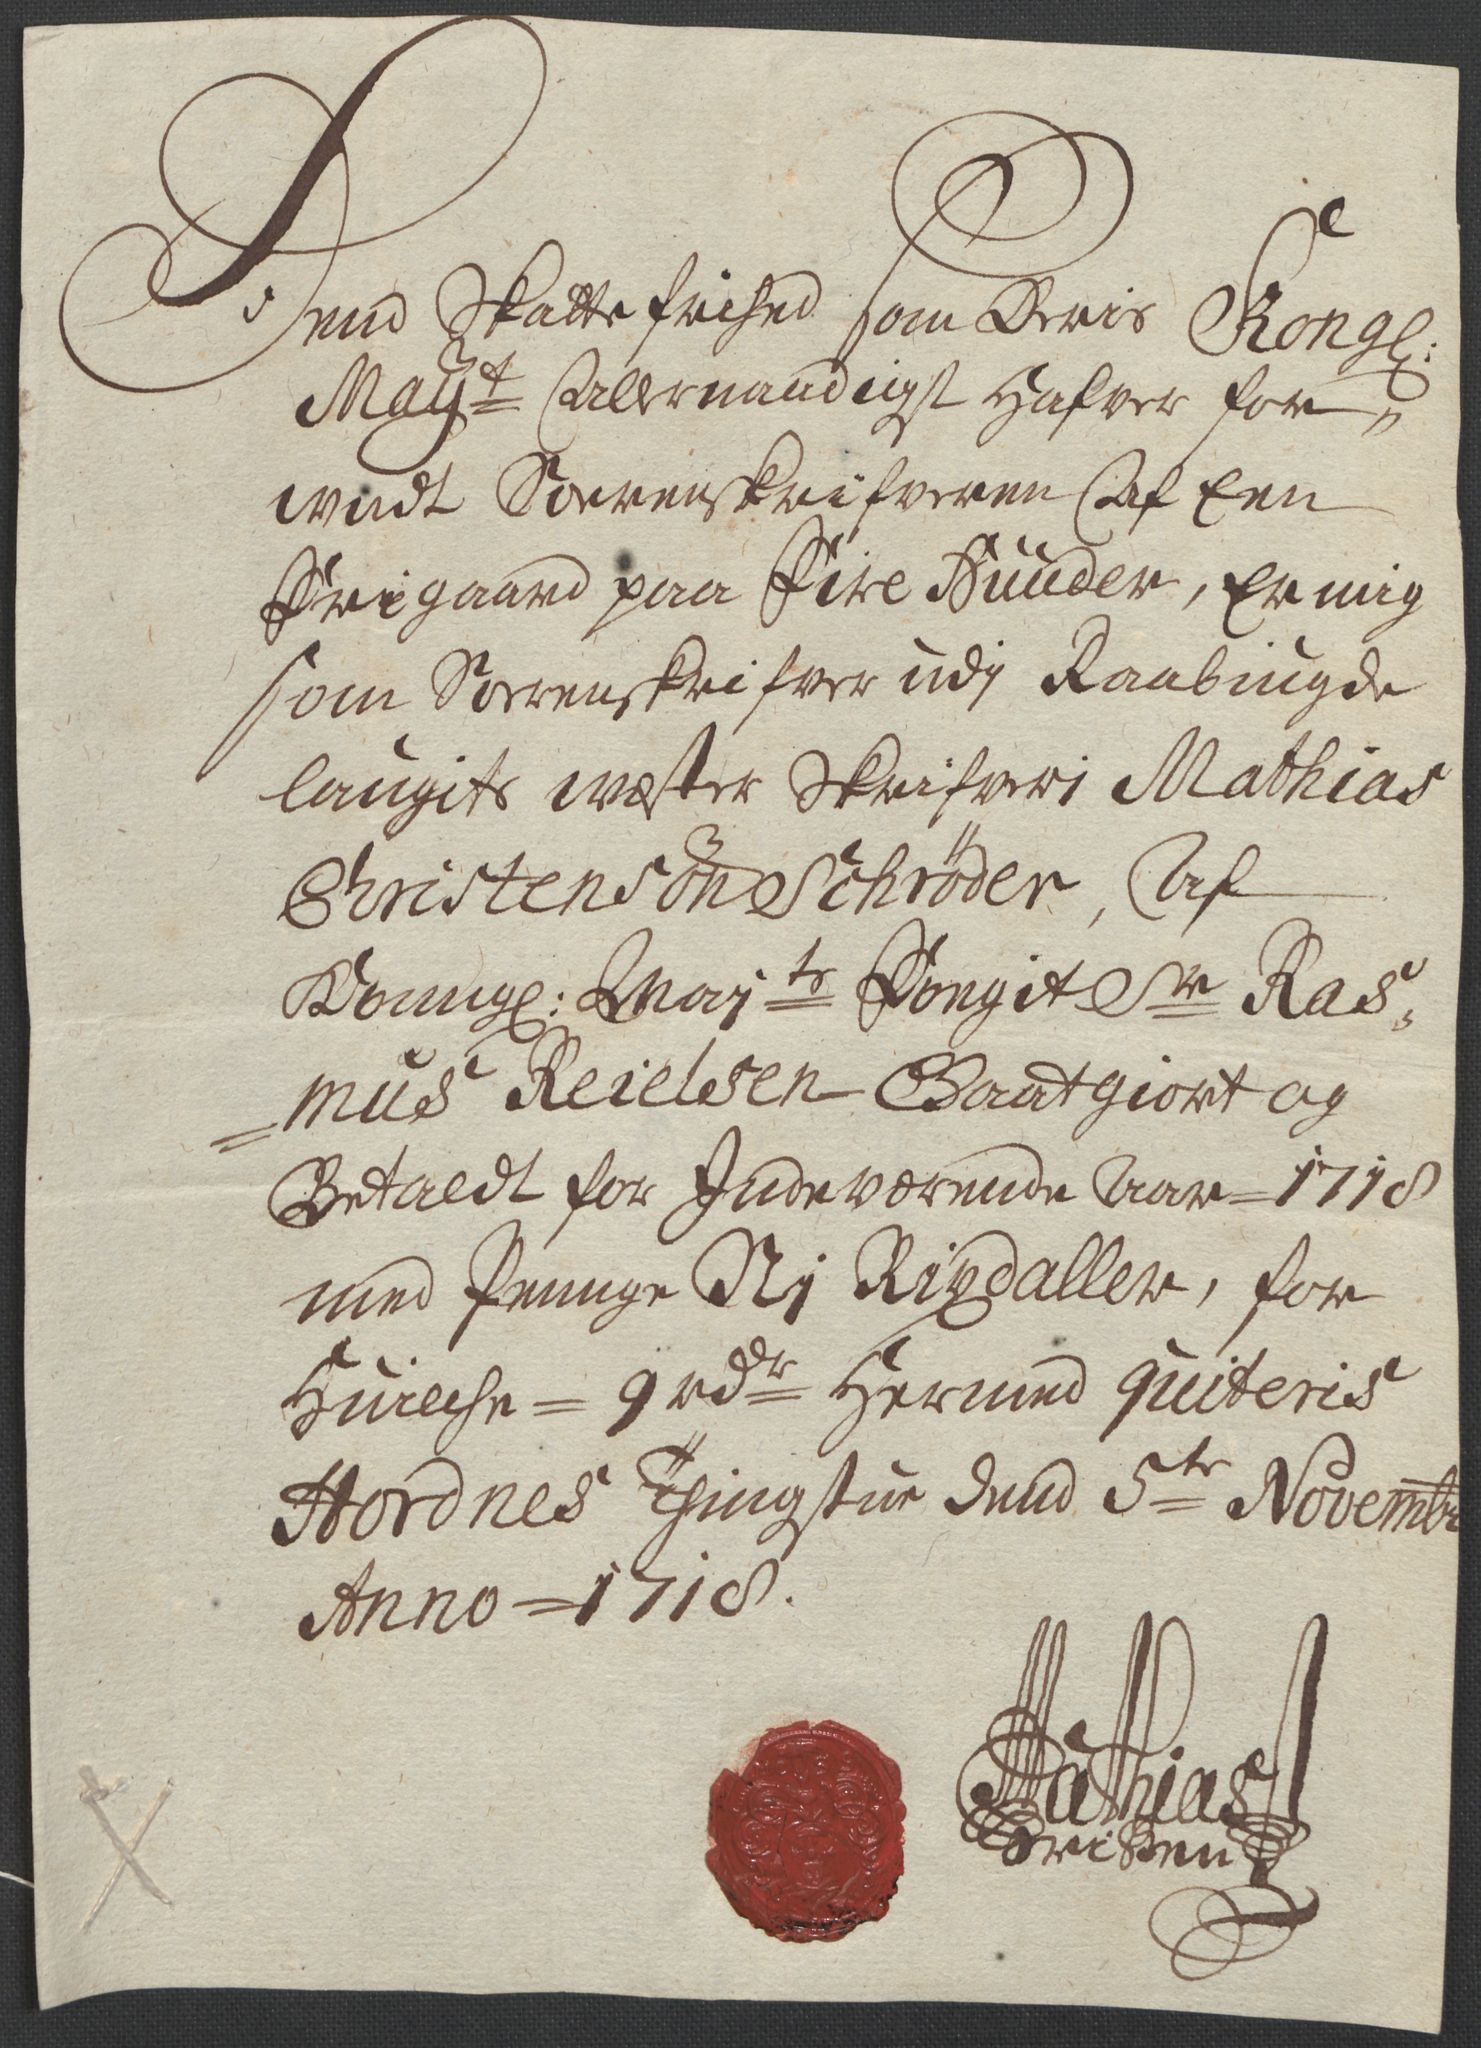 Dend Skatte frihed som Deris Kongl:
Mayt Allernaadigst Hafver for„
undt Sorrenskrifveren Af Een
Friigaard paa Fire Huuder, Er mig
som Sorrenskrifver udj Raabiugde
laugits wæster Skrifveri Mathias
Christensön Schröder, Af
Kongl: Mayts Fougit Sr Ras„
=mus Reielsen Gaatgiort og
Betaldt for Indeværende Aar=1718
med Penge Nj Rixdaller, for
Huilche = 9 rdr Hermed quiteris
Hordnes Thingstue dend 5te Novembr
Anno=1718.
Mathias
Cristen